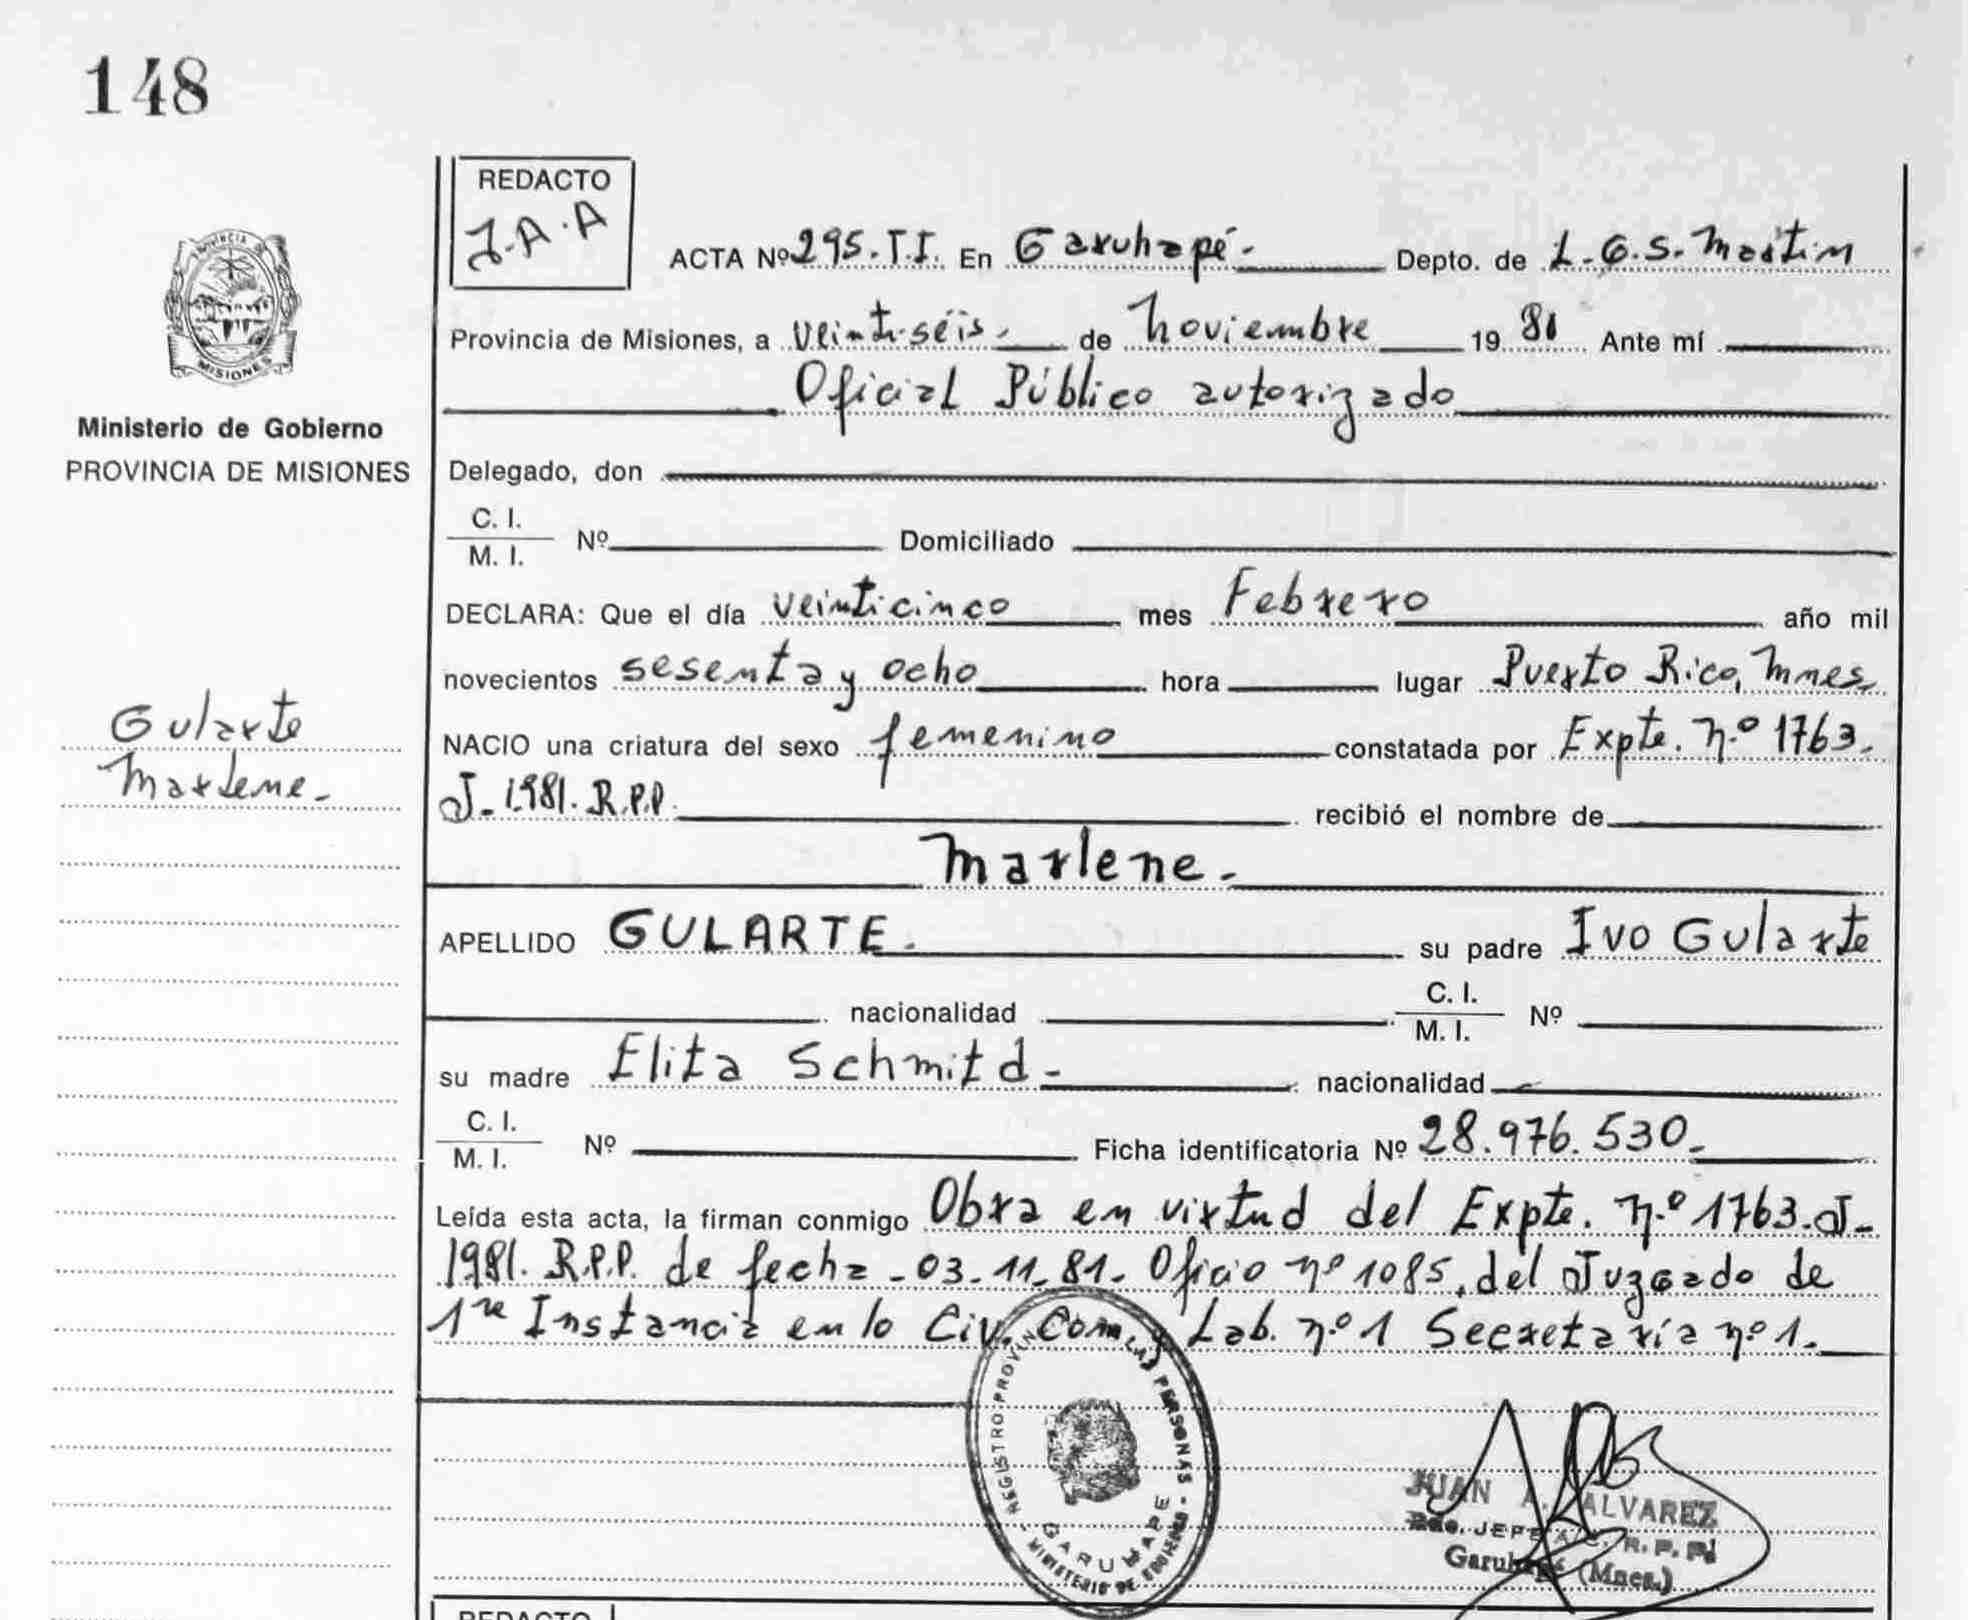 148
REDACTO
J.A.A
ACTA Nº 295.T.I. En Garuhapé.- Depto. de L.G.S.Martin
PROVINCIA DE
MISIONES
Provincia de Misiones, a veintiséis.- de Noviembre 1981 Ante mí
Oficial Público autorizado
Ministerio de Gobierno
PROVINCIA DE MISIONES
Delegado, don
C. I.
M. I.
Nº Domiciliado
DECLARA: Que el día veinticinco mes Febrero año mil
novecientos sesenta y ocho hora lugar Puerto Rico, Mnes.
Gularte
Marlene.-
NACIO una criatura del sexo femenino constatada por Expte. n.º 1763.
J-1981. R.P.P. recibió el nombre de
Marlene.-
APELLIDO GULARTE. su padre Ivo Gularte
nacionalidad C. I. M. I. Nº
su madre Elita Schmitd.- nacionalidad
C. I.
M. I.
Nº Ficha identificatoria Nº 28.976.530.-
Leída esta acta, la firman conmigo Obra en virtud del Expte. n.º 1763.J-
1981. R.P.P. de fecha -03-11-81- Oficio nº 1085, del Juzgado de
1ra Instancia en lo Civ. Com y Lab. n.º 1 Secretaría n.º 1.-
REGISTRO PROVIN LAS PERSONAS - MINISTERIO DE GOBIERNO
GARUHAPE
JUAN A. ALVAREZ
JEFE R. P. P.
Garuhapé (Mnes.)
REDACTO